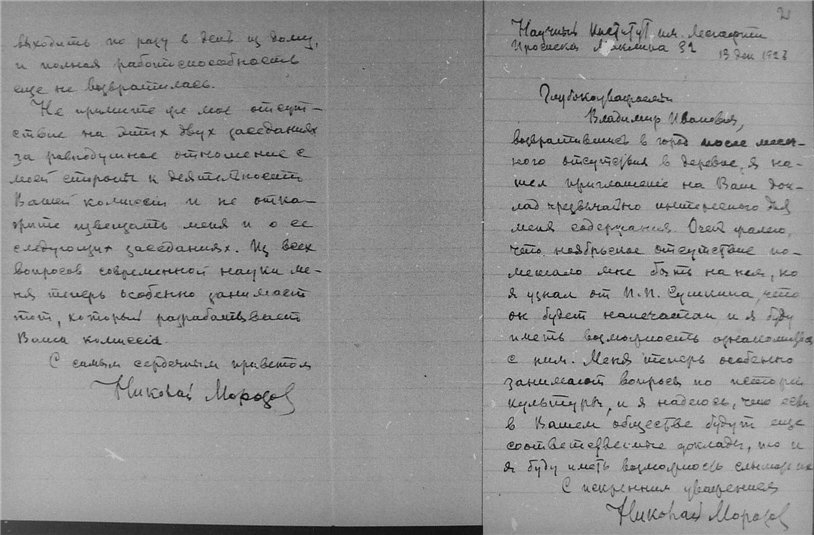 выходить по разу в день из дому,
и полная работоспособность
еще не возвратилась.
Не примите же мое отсут-
ствие на этих двух заседаниях
за равнодушное отношение с
моей стороны к деятельности
Вашей комиссии и не отка-
жите извещать меня и о ее
следующих заседаниях. Из всех
вопросов современной науки ме-
ня теперь особенно занимает
тот, который разрабатывает
Ваша комиссия.
С самым сердечным приветом
Николай Морозов
2
Научный Институт им. Лесгафта
Проспект Маклина 32
13 дек 192
Глубокоуважаемый
Владимир Иванович,
возвратившись в город после месяч-
ного отсутствия в деревне, я на-
шел приглашение на Ваш док-
лад чрезвычайно интересного для
меня содержания. Очень жалею,
что ноябрьское отсутствие по-
мешало мне быть на нем, но
я узнал от П.П. Сушкина, что
он будет напечатан и я буду
иметь возможность ознакомиться
с ним. Меня теперь особенно
занимают вопросы по истории
культуры, и я надеюсь, что если
в Вашем обществе будут еще
соответственные доклады, то и
я буду иметь возможность слышать их
С искренним уважением
Николай Морозов